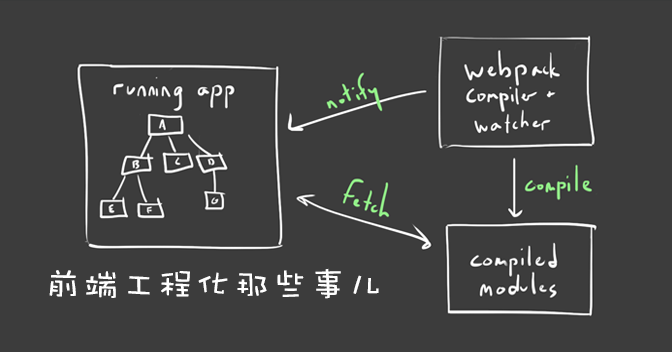 running app
A
B
C
D
E
F
G
notify
webpack
compiler +
watcher
compile
Fetch
compiled
modules
前端工程化那些事儿